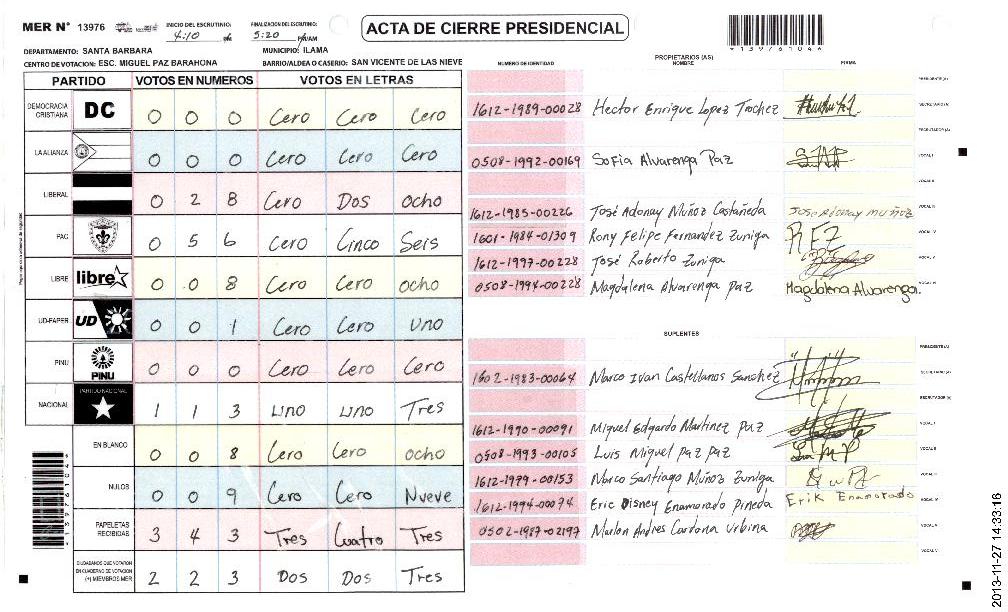 MER N° 13976
INICIO DEL ESCRUTINIO: 4:10 PM
FINALIZACION DEL ESCRUTINIO: 5:20 PM/AM
ACTA DE CIERRE PRESIDENCIAL
DEPARTAMENTO: SANTA BARBARA MUNICIPIO: ILAMA
CENTRO DE VOTACION: ESC. MIGUEL PAZ BARAHONA BARRIO/ALDEA O CASERIO: SAN VICENTE DE LAS NIEVE
PARTIDO VOTOS EN NUMEROS VOTOS EN LETRAS
DEMOCRACIA CRISTIANA DC 0 0 0 Cero Cero Cero
LA ALIANZA 0 0 0 Cero Cero Cero
LIBERAL 0 2 8 Cero Dos ocho
PAC 0 5 6 Cero Cinco Seis
LIBRE libre 0 0 8 Cero Cero ocho
UD-FAPER UD 0 0 1 Cero Cero uno
PINU PINU 0 0 0 Cero Cero Cero
NACIONAL PARTIDO NACIONAL 1 1 3 uno uno Tres
EN BLANCO 0 0 8 Cero Cero ocho
NULOS 0 0 9 Cero Cero Nueve
PAPELETAS RECIBIDAS 3 4 3 Tres Cuatro Tres
CIUDADANOS QUE VOTARON EN CUADERNO DE VOTACION (+) MIEMBROS MER 2 2 3 Dos Dos Tres
PROPIETARIOS (AS)
NUMERO DE IDENTIDAD NOMBRE FIRMA
PRESIDENTE(A)
1612-1989-00028 Hector Enrique Lopez Trochez SECRETARIO(A)
ESCRUTADOR (A)
0508-1992-00169 Sofia Alvarenga Paz VOCAL I
VOCAL II
1612-1985-00226 José Adonay Muñoz Castañeda Jose Adonay muñoz VOCAL III
1601-1984-01309 Rony Felipe Fernandez Zuniga RFZ VOCAL IV
1612-1997-00228 José Roberto Zuniga VOCAL V
0508-1994-00228 Magdalena Alvarenga Paz Magdalena Alvarenga. VOCAL VI
SUPLENTES
PRESIDENTE(A)
1602-1983-00064 Marco Ivan Castellanos Sanchez SECRETARIO(A)
ESCRUTADOR (A)
1612-1990-00091 Miguel Edgardo Martinez Paz VOCAL I
0508-1993-00105 Luis Miguel paz paz VOCAL II
1612-1979-00153 Marco Santiago Muñoz Zuniga VOCAL III
1612-1994-00074 Eric Disney Enamorado Pineda Erik Enamorado VOCAL IV
0502-1987-02197 Marlon Andres Cardona Urbina VOCAL V
VOCAL VI
2013-11-27 14:33:16